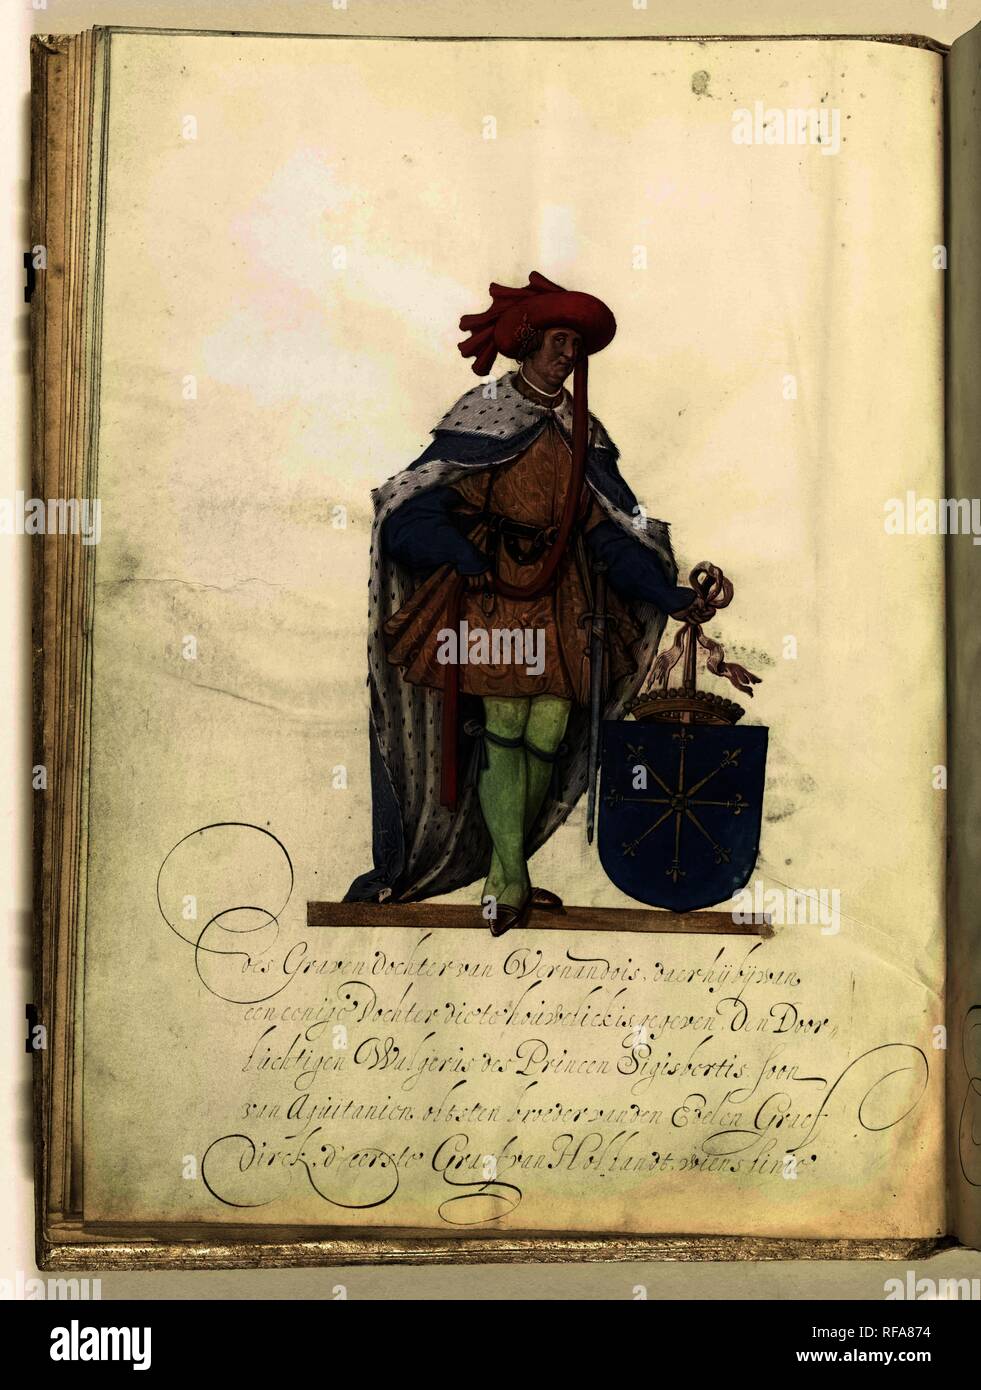 des Graven dochter van Vernandois, daer hij bij van
een eenige Dochter die te houwelick is gegeven, Den Door-
luchtigen Wulgerus des Princen Sigisbertis, soon
van Aquitanien, oltsten broeder van den Edelen Graef
Dirck, d'eerste Graef van Hollandt, wiens linie
a
alamy
Image ID: RFA874
www.alamy.com